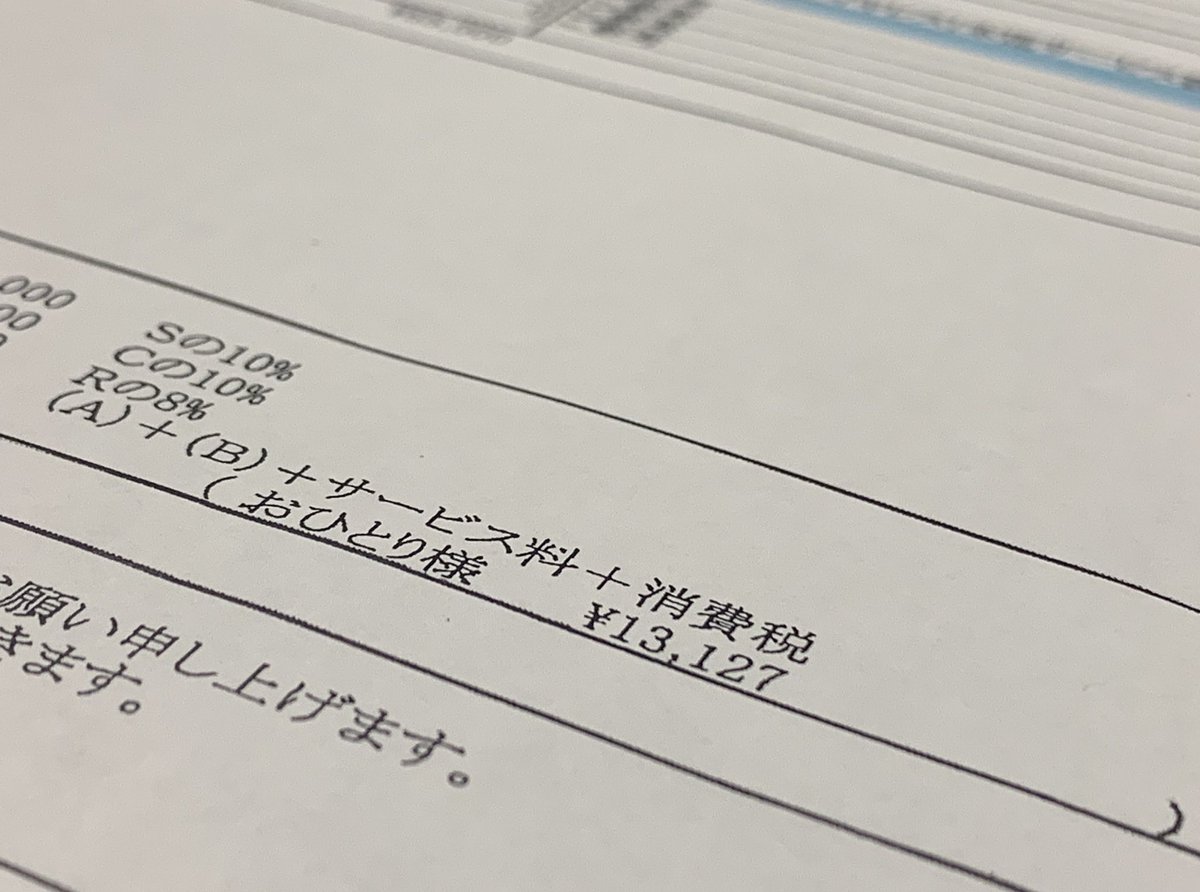 000 Sの10%
00 Cの10%
Rの8%
(A)+(B)+サービス料+消費税
(おひとり様 ¥13,127 )
願い申し上げます。
きます。